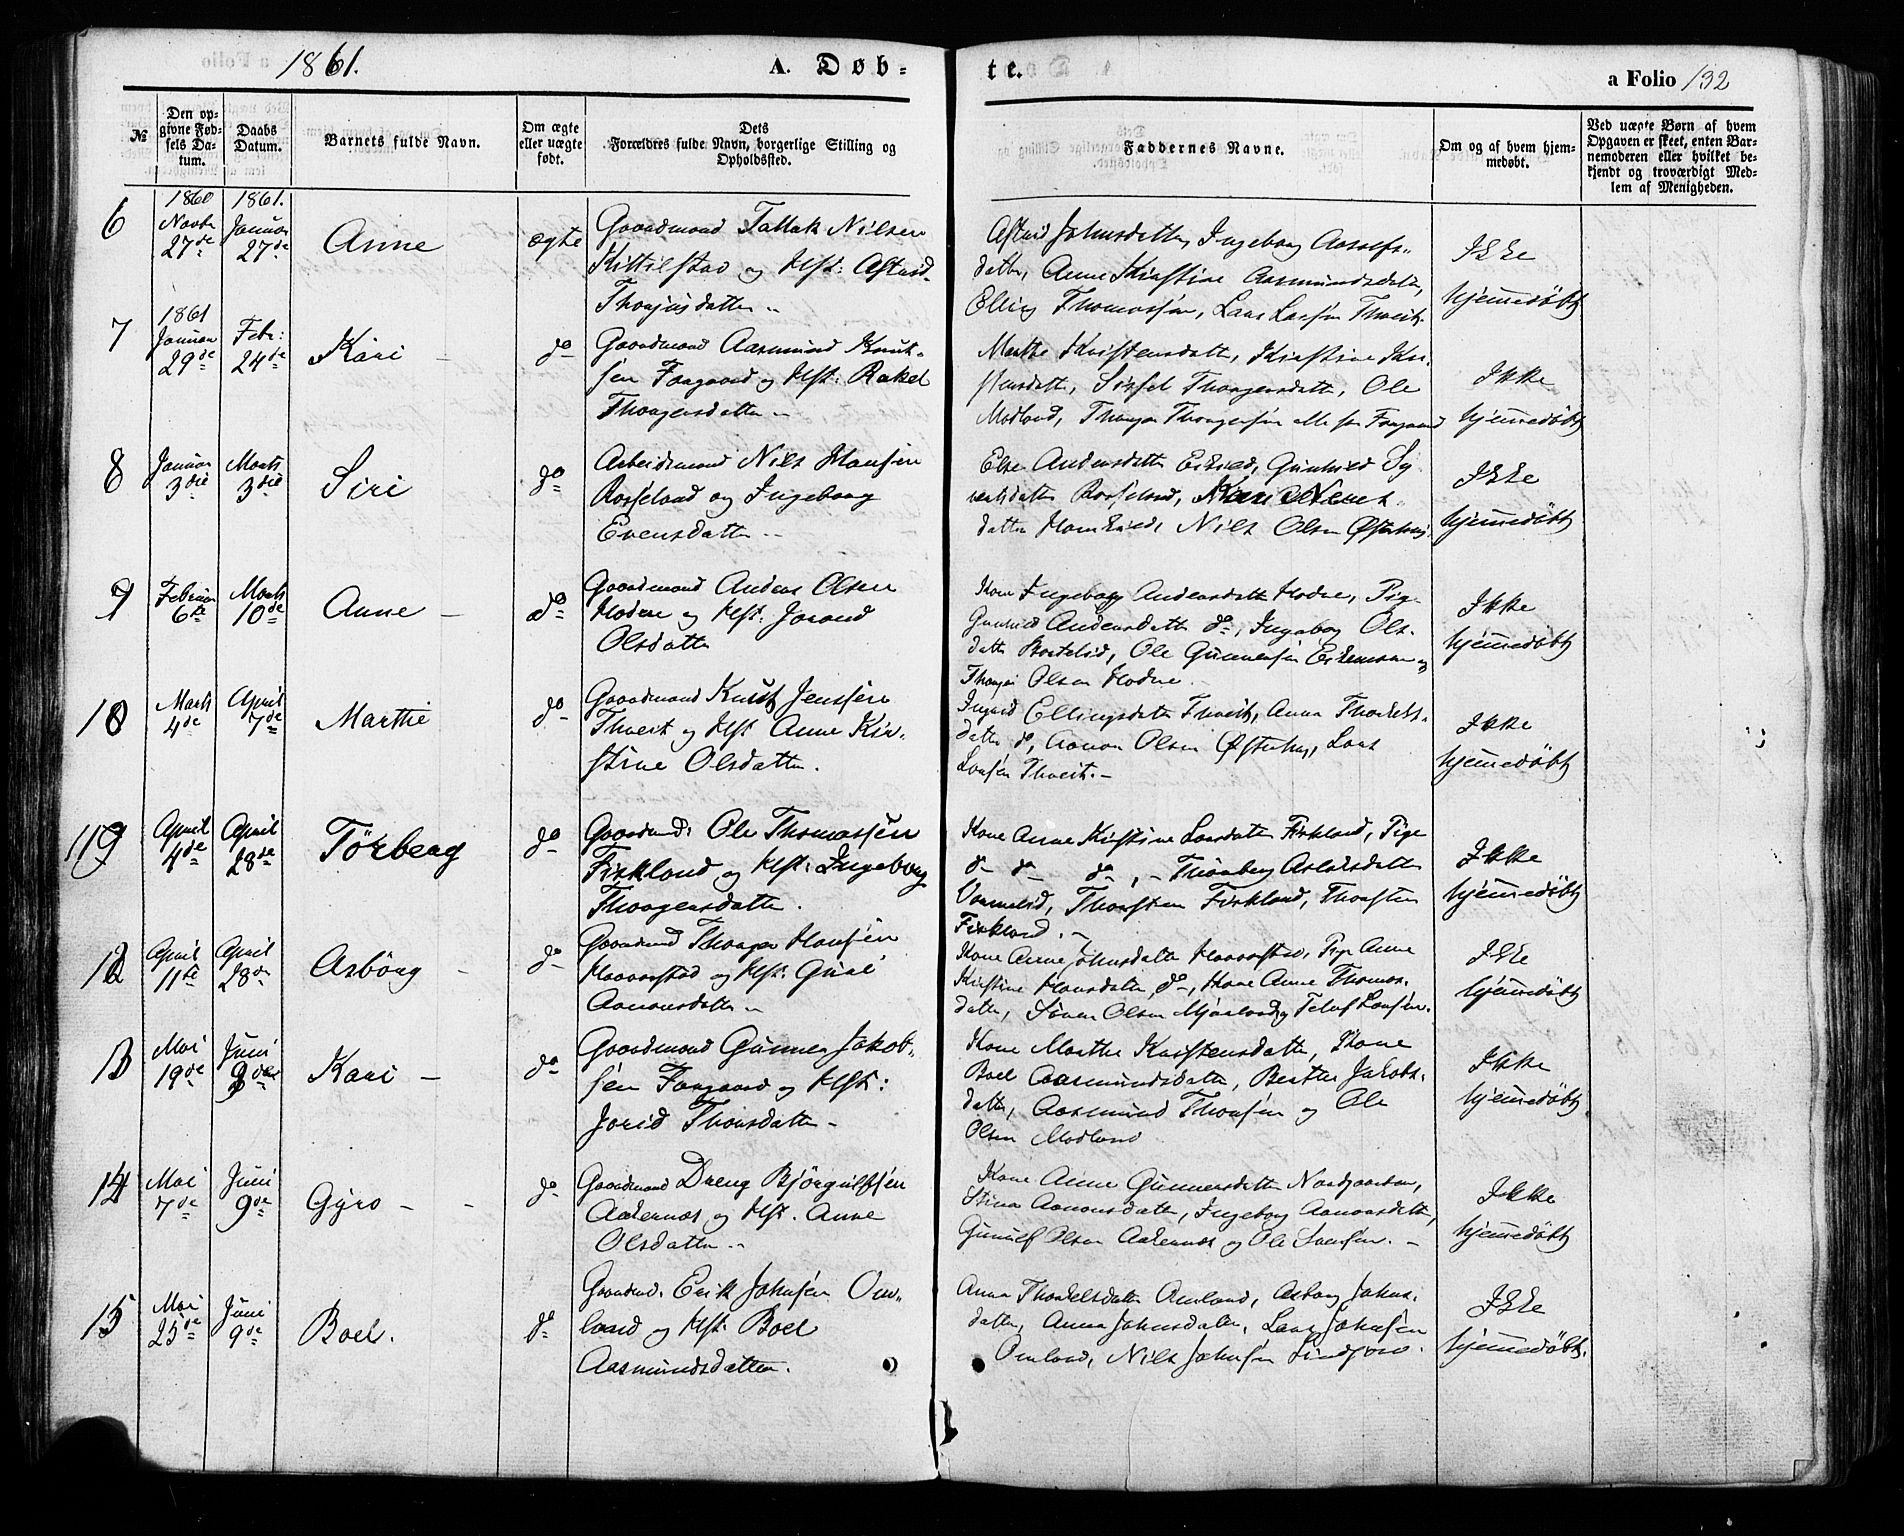 1861.
A. Døb-
te.
a Folio 132
№
Den op-
givne Fød-
sels Da-
tum.
Daabs
Datum.
Barnets fulde Navn.
Om ægte
eller uægte
født.
Dets
Forældres fulde Navn, borgerlige Stilling og
Opholdssted.
Faddernes Navne.
Om og af hvem hjem-
medøbt.
Ved uægte Børn af hvem
Opgaven er skeet, enten Bar-
nemoderen eller hvilket be-
kjendt og troværdigt Med-
lem af Menigheden.
6
1860
Novbr
27de
1861.
Januar
27de
Anne
ægte
Gaardmand Tallak Nilsen
Kittilstad og Hst: Astrid
Thorjusdatter
Astrid Johnsdatter, Ingeborg Aasolfs-
datter, Anne Kirstine Aasmundsdatter,
Elling Thomassen, Lars Larsen Thveit.
Ikke
hjemmedøbt
7
1861
Januar
29de
Febr:
24de
Kari
do
Gaardmand Aasmund Knut-
sen Faagaard og Hst: Rakel
Thorgersdatter
Marthe Kristensdatter, Kirstine Kri-
stensdatter, Sissel Thorgersdatter, Ole
Modland, Thorger Thorgersen alle fra Faagaard
Ikke
hjemmedøbt
8
Januar
3die
Marts
3die
Siri
do
Arbeidsmand Nils Hansen
Rosseland og Ingeborg
Evensdatter
Else Andersdatter Eikild, Gunhild Sy-
vertsdatter Rosseland, Karen Knuts-
datter Homelid, Nils Olsen Østerhus
Ikke
hjemmedøbt
9
Februar
6te
Marts
10de
Anne
do
Gaardmand Anders Olsen
Hodne og Hst: Jorand
Olsdatter
Kone Ingeborg Andersdatter Hodne, Pige
Gunhild Andersdatter do, Ingeborg Ols-
datter Bortelid, Ole Gunnersen Eikemoen og
Thorger Olsen Hodne.
Ikke
hjemmedøbt
10
Marts
4de
April
7de
Marthe
do
Gaardmand Knut Jenssen
Thveit og Hst Anne Kir-
stine Olsdatter.
Ingrid Ellingsdatter Thveit, Anna Thorkels-
datter do, Aanon Olsen Østerhus, Lars
Larsen Thveit.
Ikke
hjemmedøbt
11
April
4de
April
28de
Tørberg
do
Gaardmd: Ole Thomassen
Firkland og Hst: Ingeborg
Thorgersdatter.
Kone Anne Kirstine Larsdatter Firkland, Pige
do do do, Thorberg Aslaksdatter
Vormelid, Thorsten Firkland, Thorsten
Firkland.
Ikke
hjemmedøbt
12
April
11te
April
28de
Asbörg
do
Gaardmd Thorger Hansen
Haavorstad og Hst: Guro
Aanonsdatter
Kone Anne Johnsdatter Haavorstad, Pige Anne
Kirstine Hansdatter, do, Kone Anne Thomas-
datter, Søren Olsen Mjaaland og Tellef Larsen.
Ikke
hjemmedøbt
13
Mai
19de
Juni
9de
Kari
do
Gaardmand Gunner Jakob-
sen Faagaard og Hst:
Jorid Thorsdatter
Kone Marthe Kristensdatter, Kone
Boel Aasmundsdatter, Berthe Jakobs-
datter, Aasmund Thorsen og Ole
Olsen Modland
Ikke
hjemmedøbt
14
Mai
7de
Juni
9de
Gyro
do
Gaardmand Dreng Bjørgulfsen
Aakernæs og Hst. Anne
Olsdatter
Kone Anne Gunnersdatter Nordgaarden,
Stina Aanonsdatter, Ingeborg Aanonsdatter,
Gunulf Olsen Aakernæs og Ole Svensen.
Ikke
hjemmedøbt
15
Mai
25de
Juni
9de
Boel.
do
Gaardmd. Erik Johnsen Om-
land og Hst: Boel
Aasmundsdatter.
Anna Thorkelsdatter Omland, Asborg Johns-
datter, Anna Johnsdatter, Lars Johnsen
Omland, Nils Johnsen Lindjord.
Ikke
hjemmedøbt.